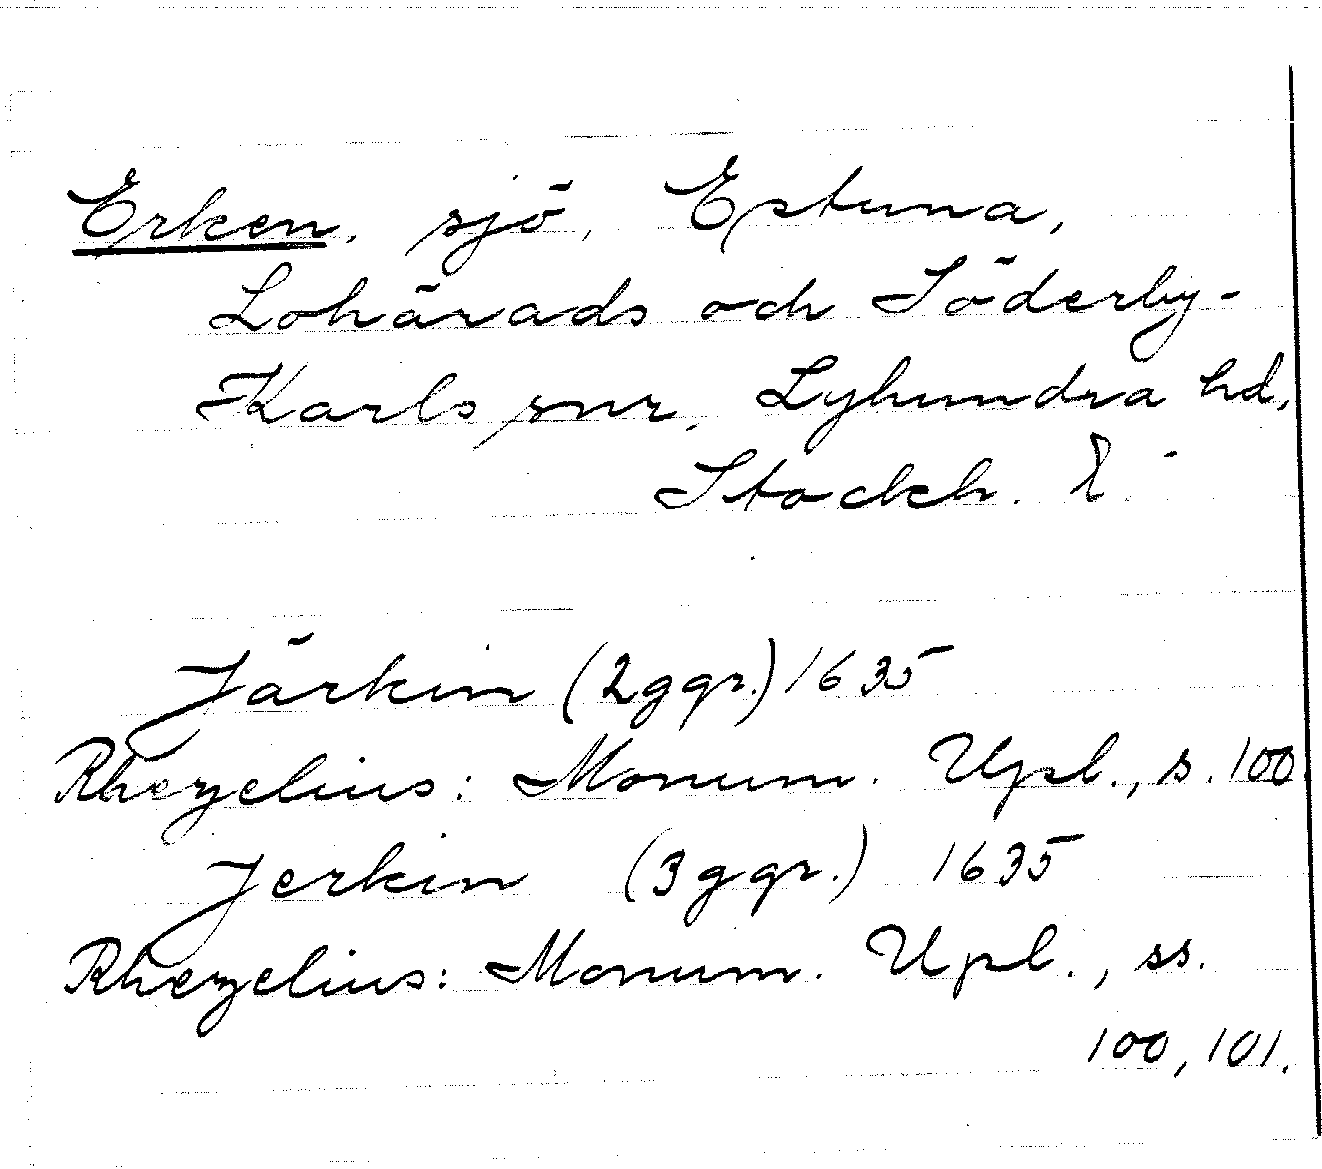 Erken, sjö, Estuna,
Lohärads och Söderby-
Karls snr, Lyhundra hd,
Stockh. l.
Järkin (2 ggr.) 1635
Rhezelius: Monum. Upl., s. 100.
Jerkin (3 ggr.) 1635
Rhezelius: Monum. Upl., ss.
100, 101.